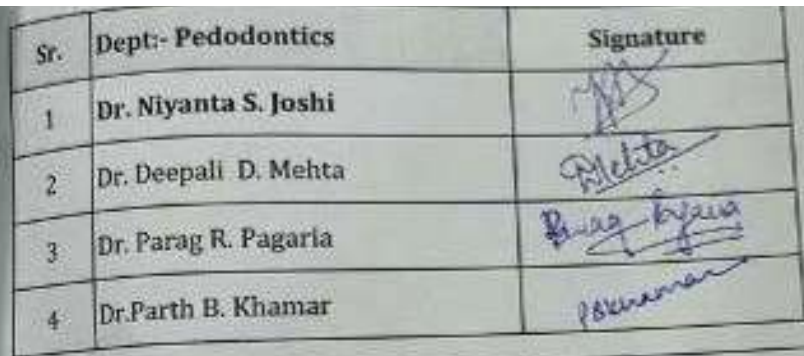 Sr. Dept:- Pedodontics Signature
1 Dr. Niyanta S. Joshi
2 Dr. Deepali D. Mehta DMehta
3 Dr. Parag R. Pagaria Parag
4 Dr.Parth B. Khamar PBKhamar